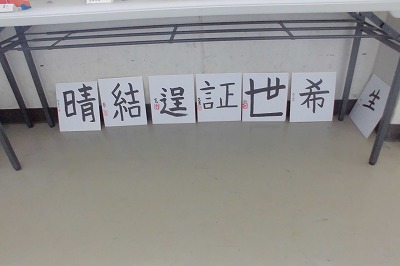 晴 結 逞 証 世 希 生